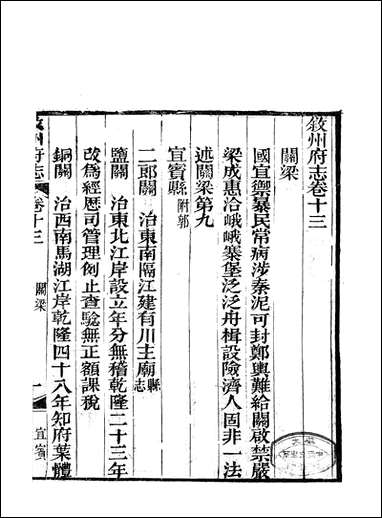 敘州府志卷十三
關梁
國宜禦暴民常病涉秦泥可封鄭輿難給關啟禁嚴
梁成惠洽峨峨寨堡泛泛舟楫設險濟人固非一法
述關梁第九
宜賓縣附郭
二郎關 治東南隔江建有川主廟縣志
鹽關 治東北江岸設立年分無稽乾隆二十三年
改為經歷司管理例止查驗無正額課稅
銅關 治西南馬湖江岸乾隆四十八年知府葉體
敘州府志 卷十三 關梁 一 宜賓